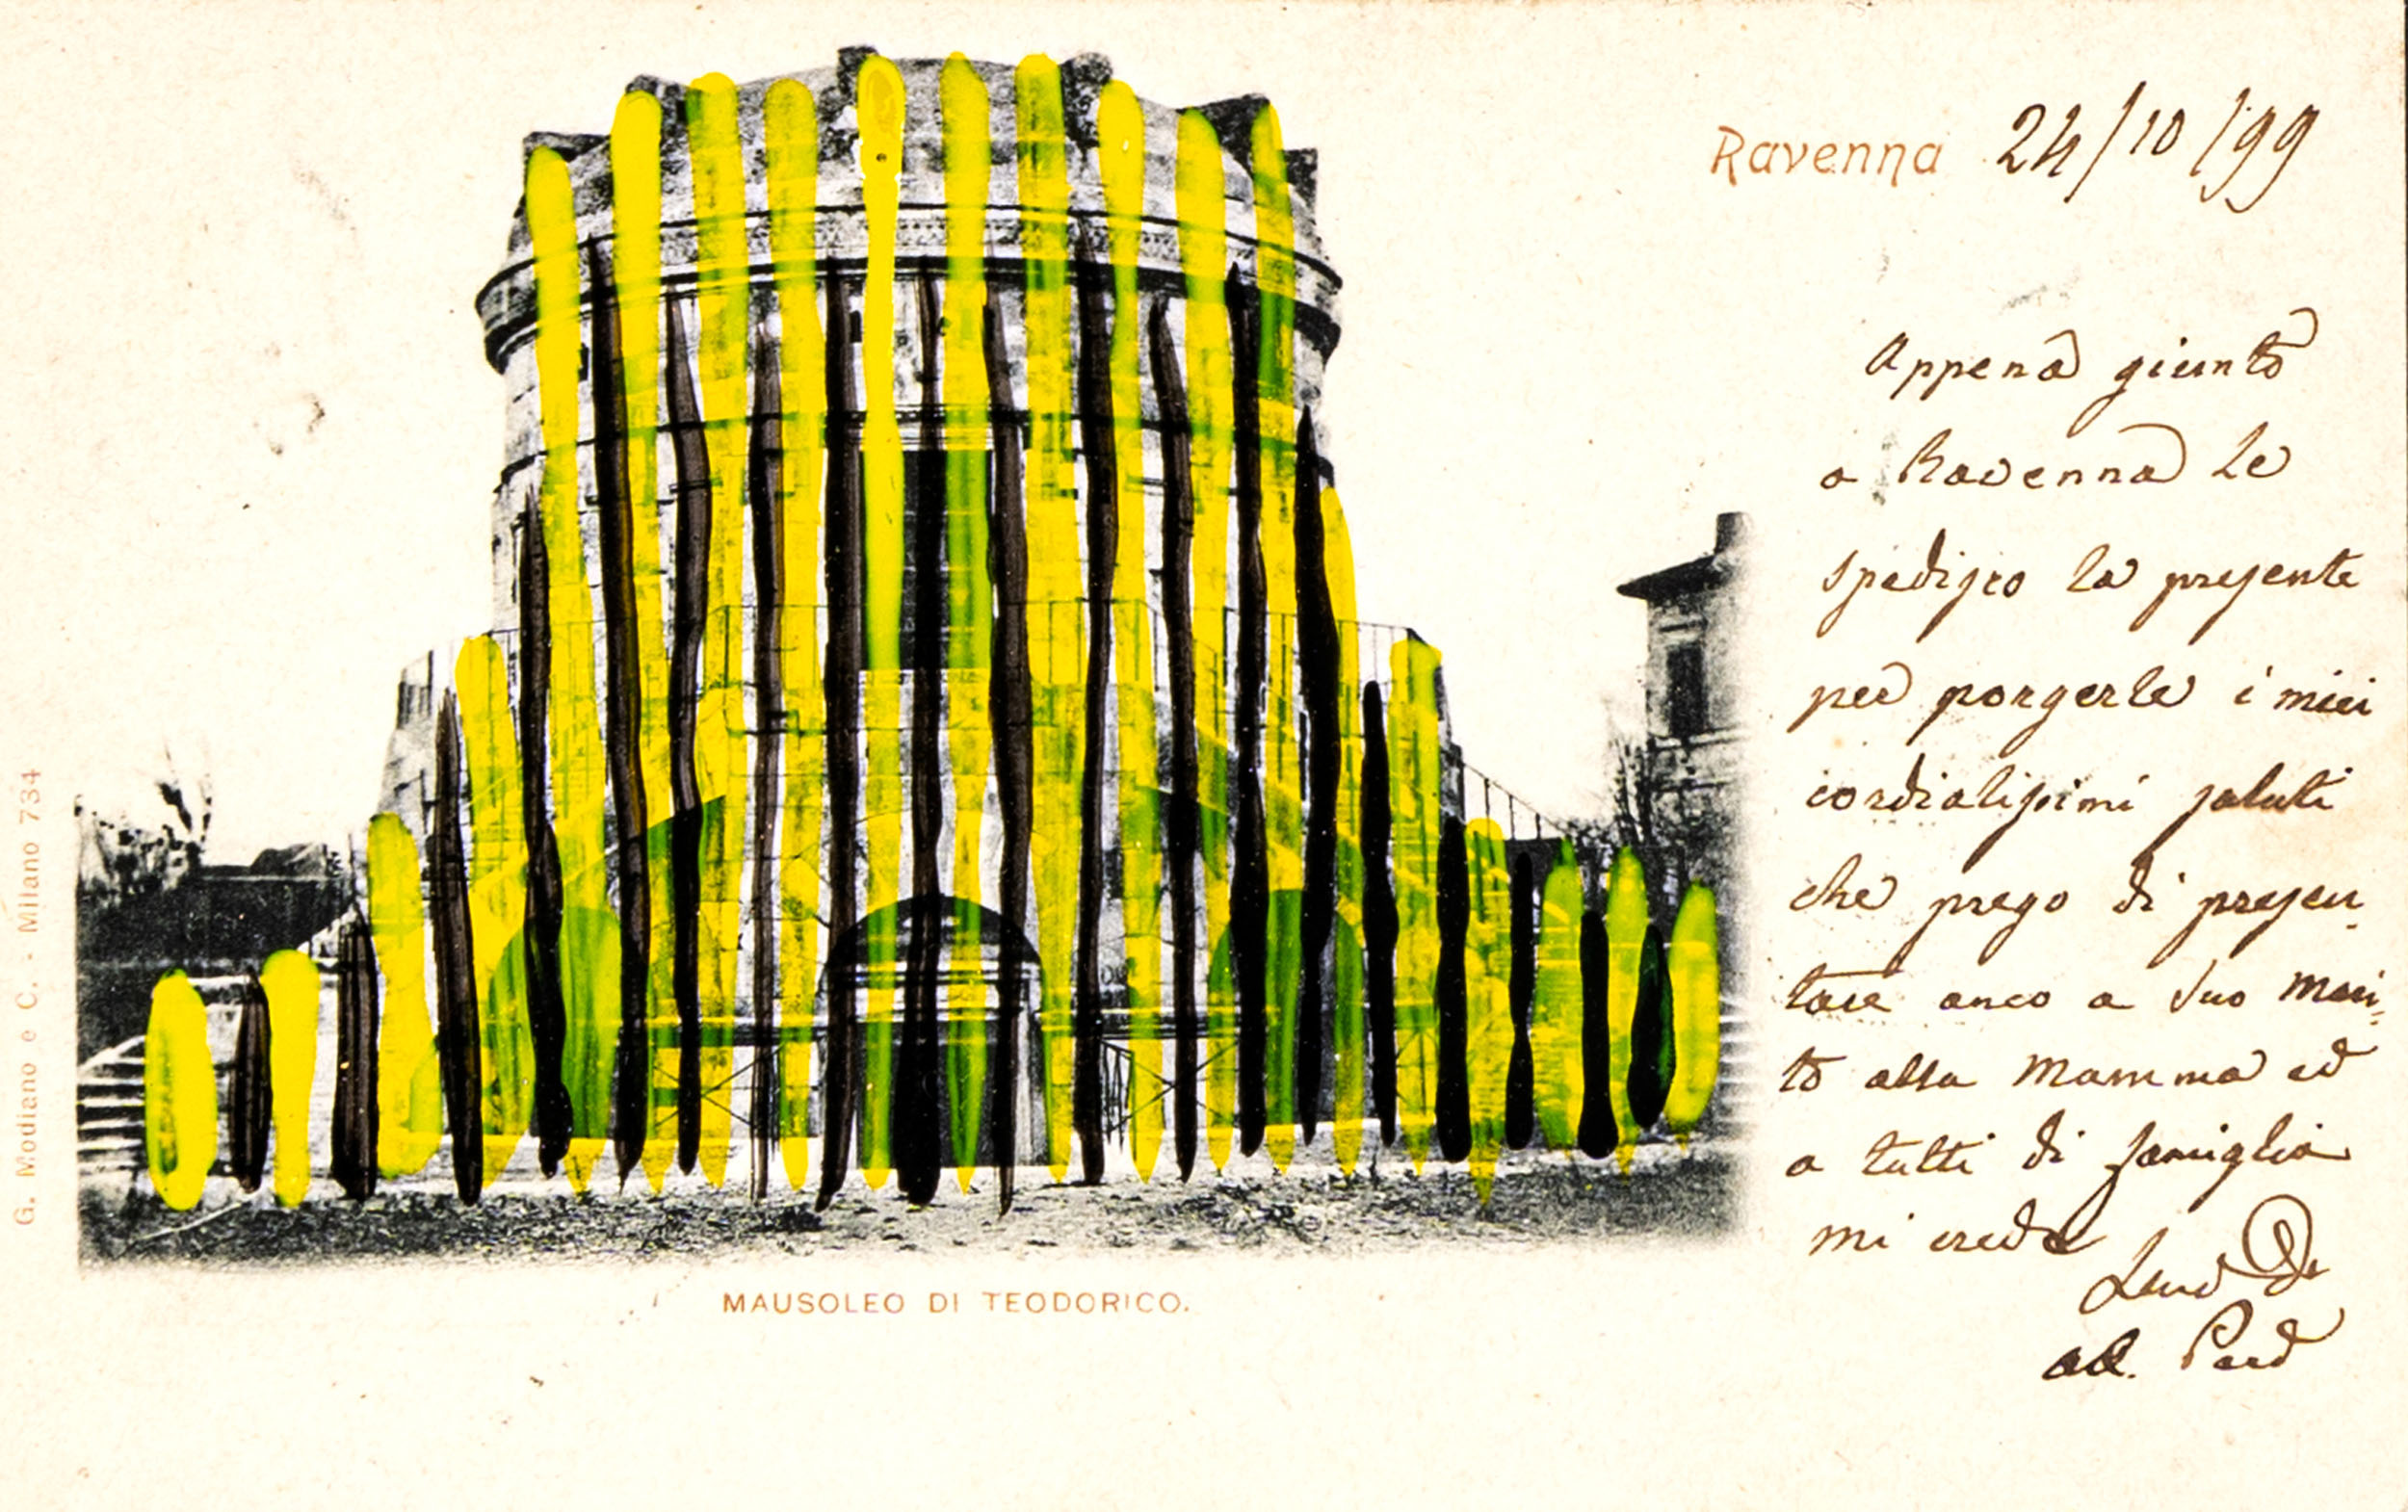 Ravenna 24/10/99
Appena giunto
a Ravenna Le
spedisco la presente
per porgerle i miei
cordialissimi saluti
che prego di presen-
tare anco a Suo Mari-
to alla Mamma ed
a tutti di famiglia
mi creda
MAUSOLEO DI TEODORICO.
G. Modiano e C. - Milano 734